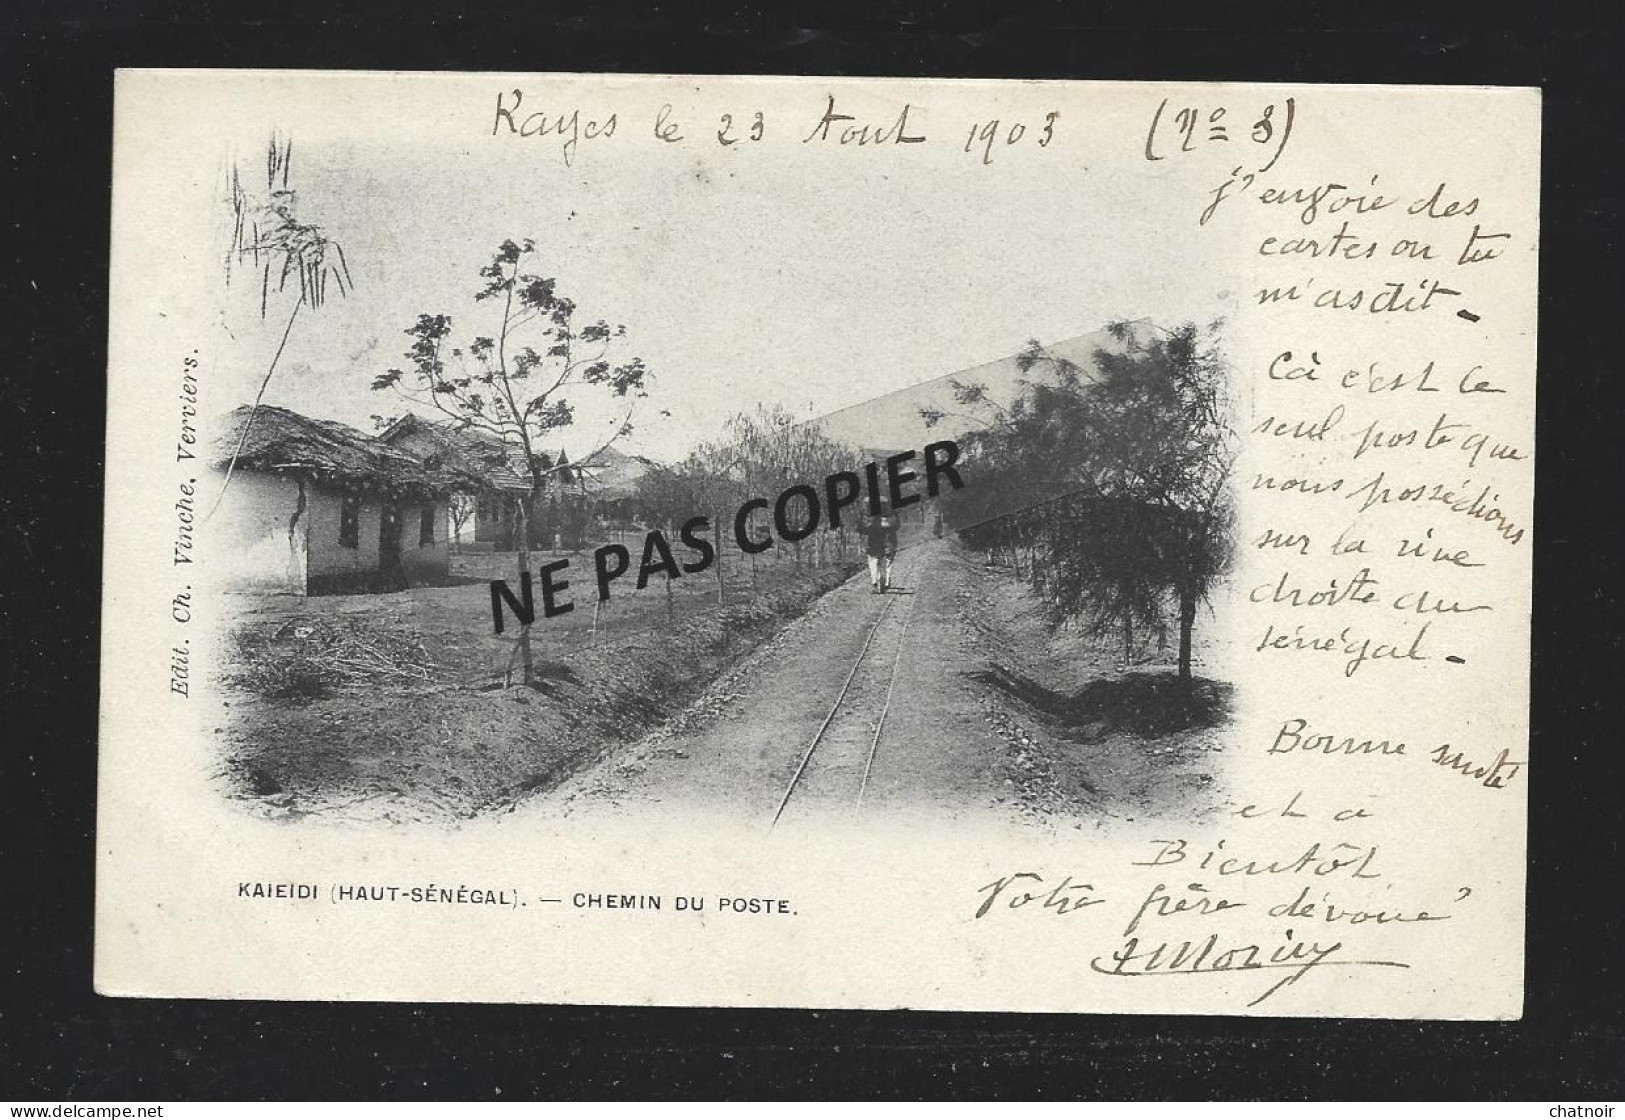 Kayes le 23 Aout 1903 (No 8)
j'envoie des
cartes ou tu
m'as dit -
Cà c'est le
seul poste que
nous possédions
sur la rive
droite du
sénégal -
Bonne santé
et a
Bientôt
Votre frère dévoué
Edit. Ch. Vinche, Verviers.
NE PAS COPIER
KAIEIDI (HAUT-SÉNÉGAL). — CHEMIN DU POSTE.
chatnoir
delcampe.net